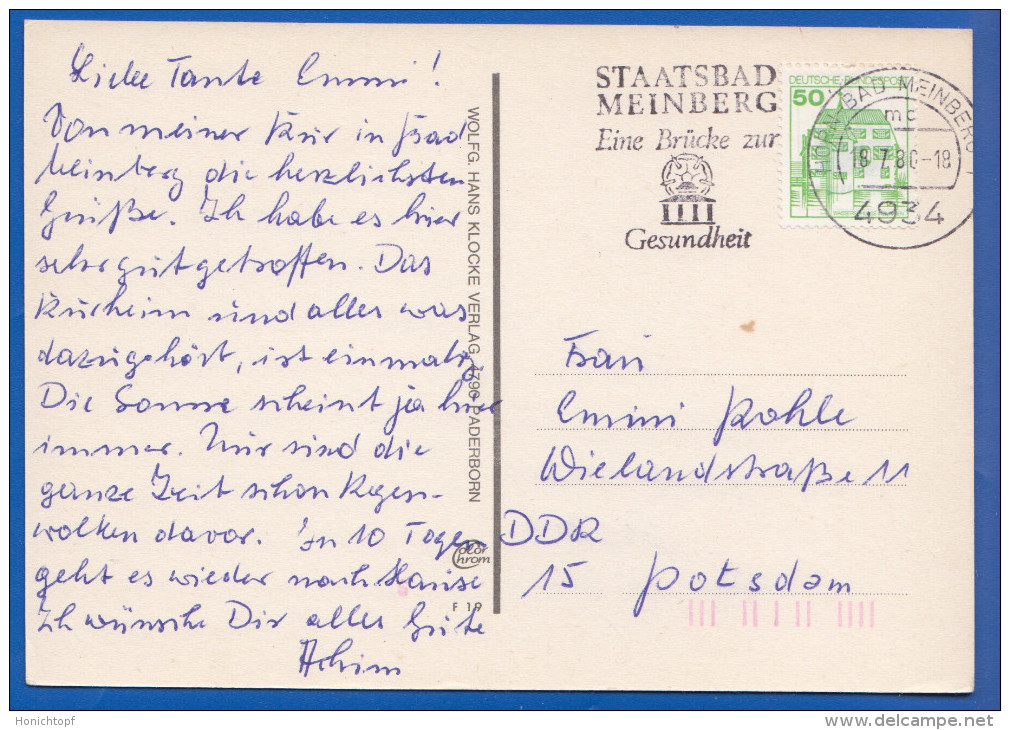 Liebe Tante Emmi!
Von meiner Kur in Bad
Meinberg die herzlichsten
Grüße. Ich habe es hier
sehr gut getroffen. Das
Kurheim und alles was
dazugehört, ist einmalig
Die Sonne scheint ja hier
immer. Nur sind die
ganze Zeit schon Regen-
wolken davor. In 10 Tagen
geht es wieder nach Hause
Ich wünsche Dir alles Gute
Achim
WOLFG. HANS KLOCKE VERLAG, 4790 PADERBORN
Color
Chrom
F 19
STAATSBAD
MEINBERG
Eine Brücke zur
Gesundheit
DEUTSCHE BUNDESPOST
50
HORN-BAD MEINBERG 1
mc
18.7.80-18
4934
Frau
Emmi Kohle
Wielandstraße 11
DDR
15 Potsdam
Honichtopf
www.delcampe.net